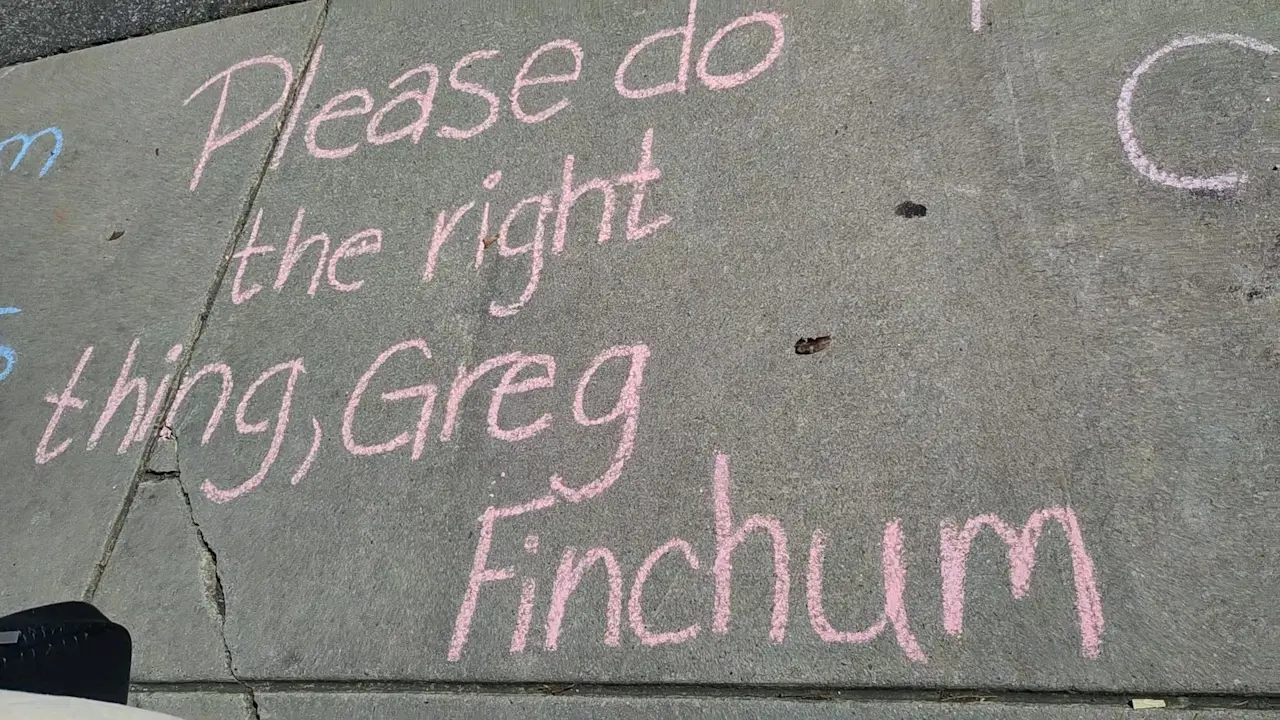 Please do
the right
thing, Greg
Finchum